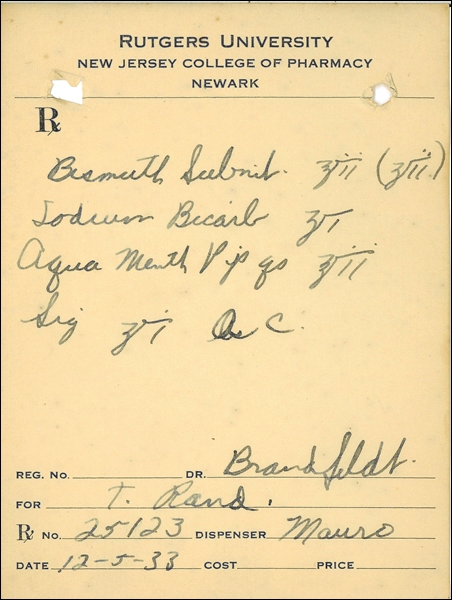 RUTGERS UNIVERSITY
NEW JERSEY COLLEGE OF PHARMACY
NEWARK
℞
Bismuth Subnit. ʒii (ʒii.)
Sodium Bicarb ʒi
Aqua Menth Pip qs ℥ii
Sig ʒi a c.
REG. NO. DR. Brandfeldt.
FOR T. Rand.
℞ NO. 25123 DISPENSER Mauro
DATE 12-5-33 COST PRICE